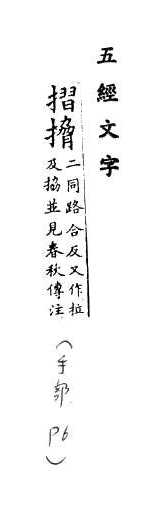 五經文字
摺搚
二同路合反又作拉
及拹並見春秋傳注
(手部 P6)